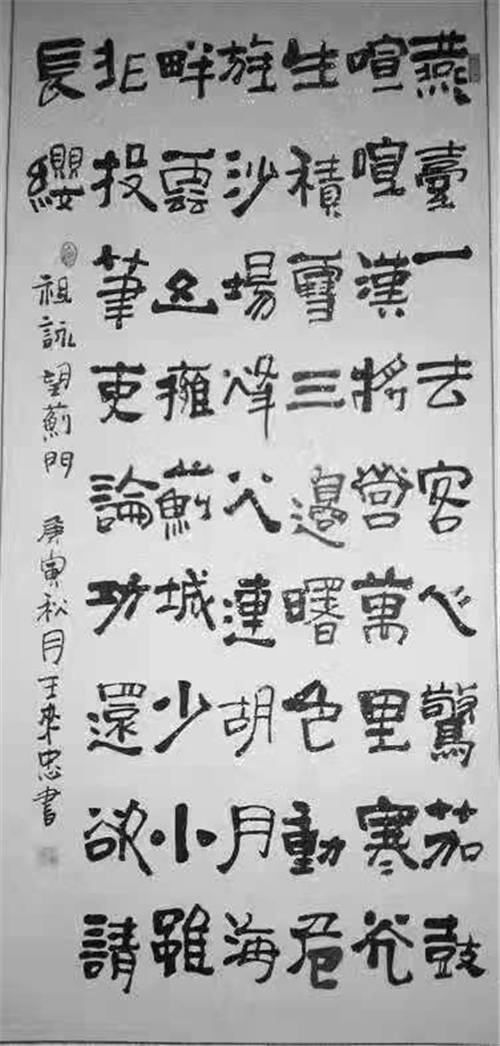 燕臺一去客心驚茄鼓
喧喧漢將營萬里寒光
生積雪三邊曙色動危
旌沙場烽火連胡月海
畔雲山擁薊城少小雖
非投筆吏論功還欲請
長纓
祖詠望薊門 庚寅秋月王來忠書